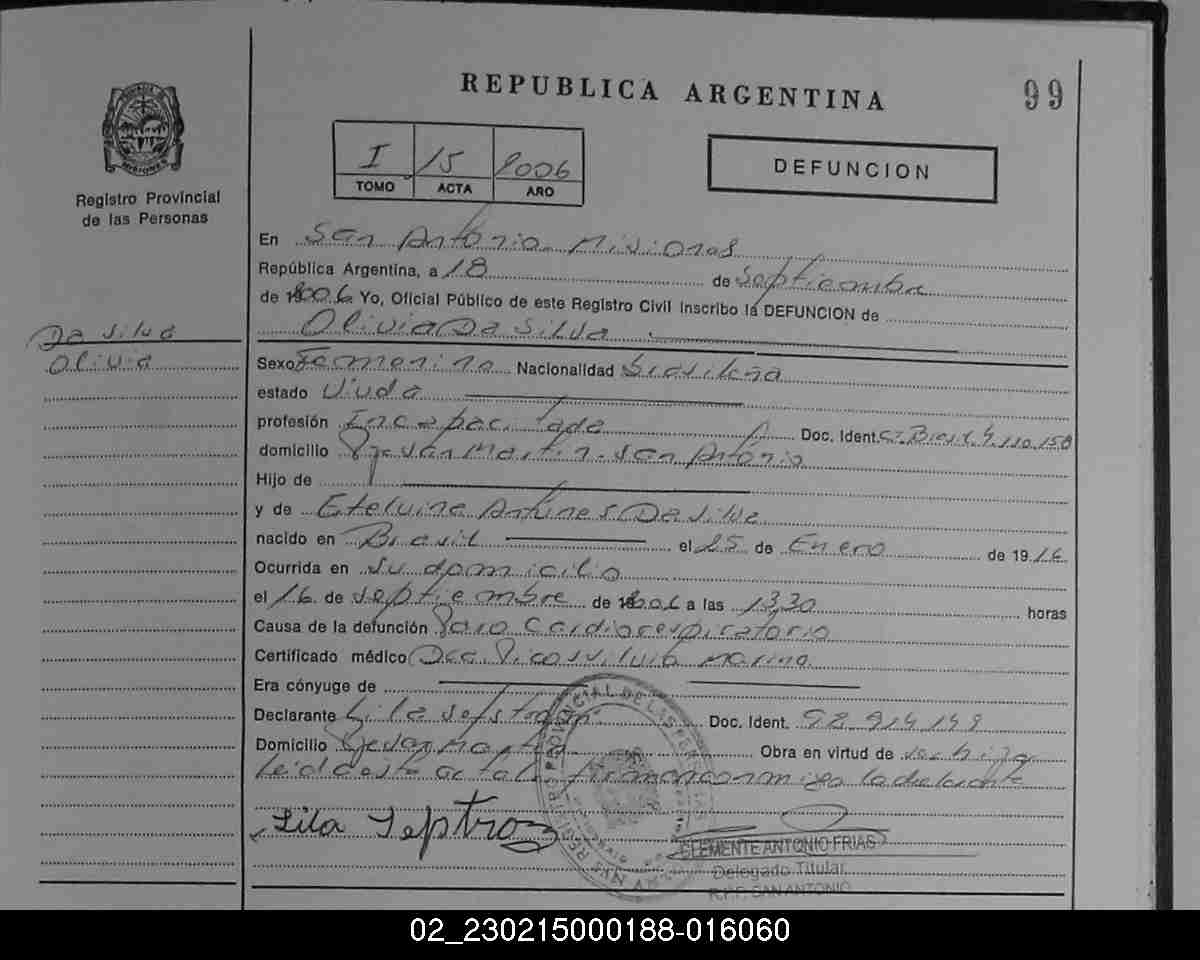 REPUBLICA ARGENTINA
99
Registro Provincial
de las Personas
I 15 2006
TOMO ACTA AÑO
DEFUNCION
En San Antonio Misiones
República Argentina, a 18 de Septiembre
de 2006 Yo, Oficial Público de este Registro Civil Inscribo la DEFUNCION de
Olivia Da Silva
Da Silva
Olivia
Sexo Femenino Nacionalidad brasileña
estado Viuda
profesión Incapacitada Doc. Ident. C.I. Bras. 4.110.150
domicilio San Martin - San Antonio
Hijo de
y de Etelvina Antunes Da Silva
nacido en Brasil el 25 de Enero de 1916
Ocurrida en su domicilio
el 16 de septiembre de 2006 a las 13,30 horas
Causa de la defunción Paro Cardiorespiratorio
Certificado médico Dra. Marina
Era cónyuge de
Declarante Lila Doc. Ident. 92.914.149
Domicilio Obra en virtud de ser hija
Leida esta acta la firma conmigo la declarante
Lila Septroz
CLEMENTE ANTONIO FRIAS
Delegado Titular
R.P.P. SAN ANTONIO
02_230215000188-016060